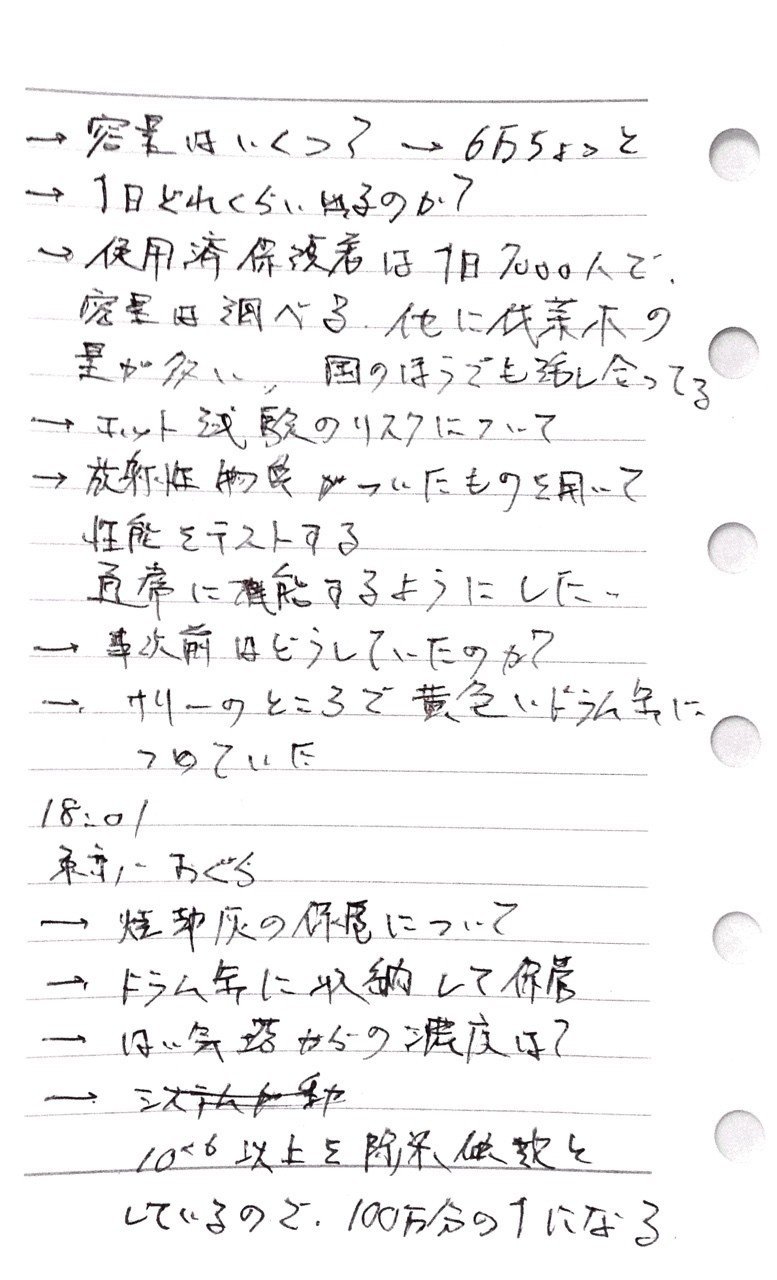 → 容量はいくつ? → 6万5ょっと
→ 1日どれくらい出るのか?
→ 使用済保護着は1日7000人で、
容量は調べる。他に伐採木の
量が多い、国のほうでも話し合ってる
→ ホット試験のリスクについて
→ 放射性物質がついたものを用いて
性能をテストする
通常に機能するようにした。
→ 事次前はどうしていたのか?
→ サリーのところで黄色いドラム缶に
つめていた
18:01
東京、おぐら
→ 焼却灰の保管について
→ ドラム缶に収納して保管
→ はい気塔からの濃度は?
→ システムが動
10^6以上を除染係数と
しているので、100万分の1になる